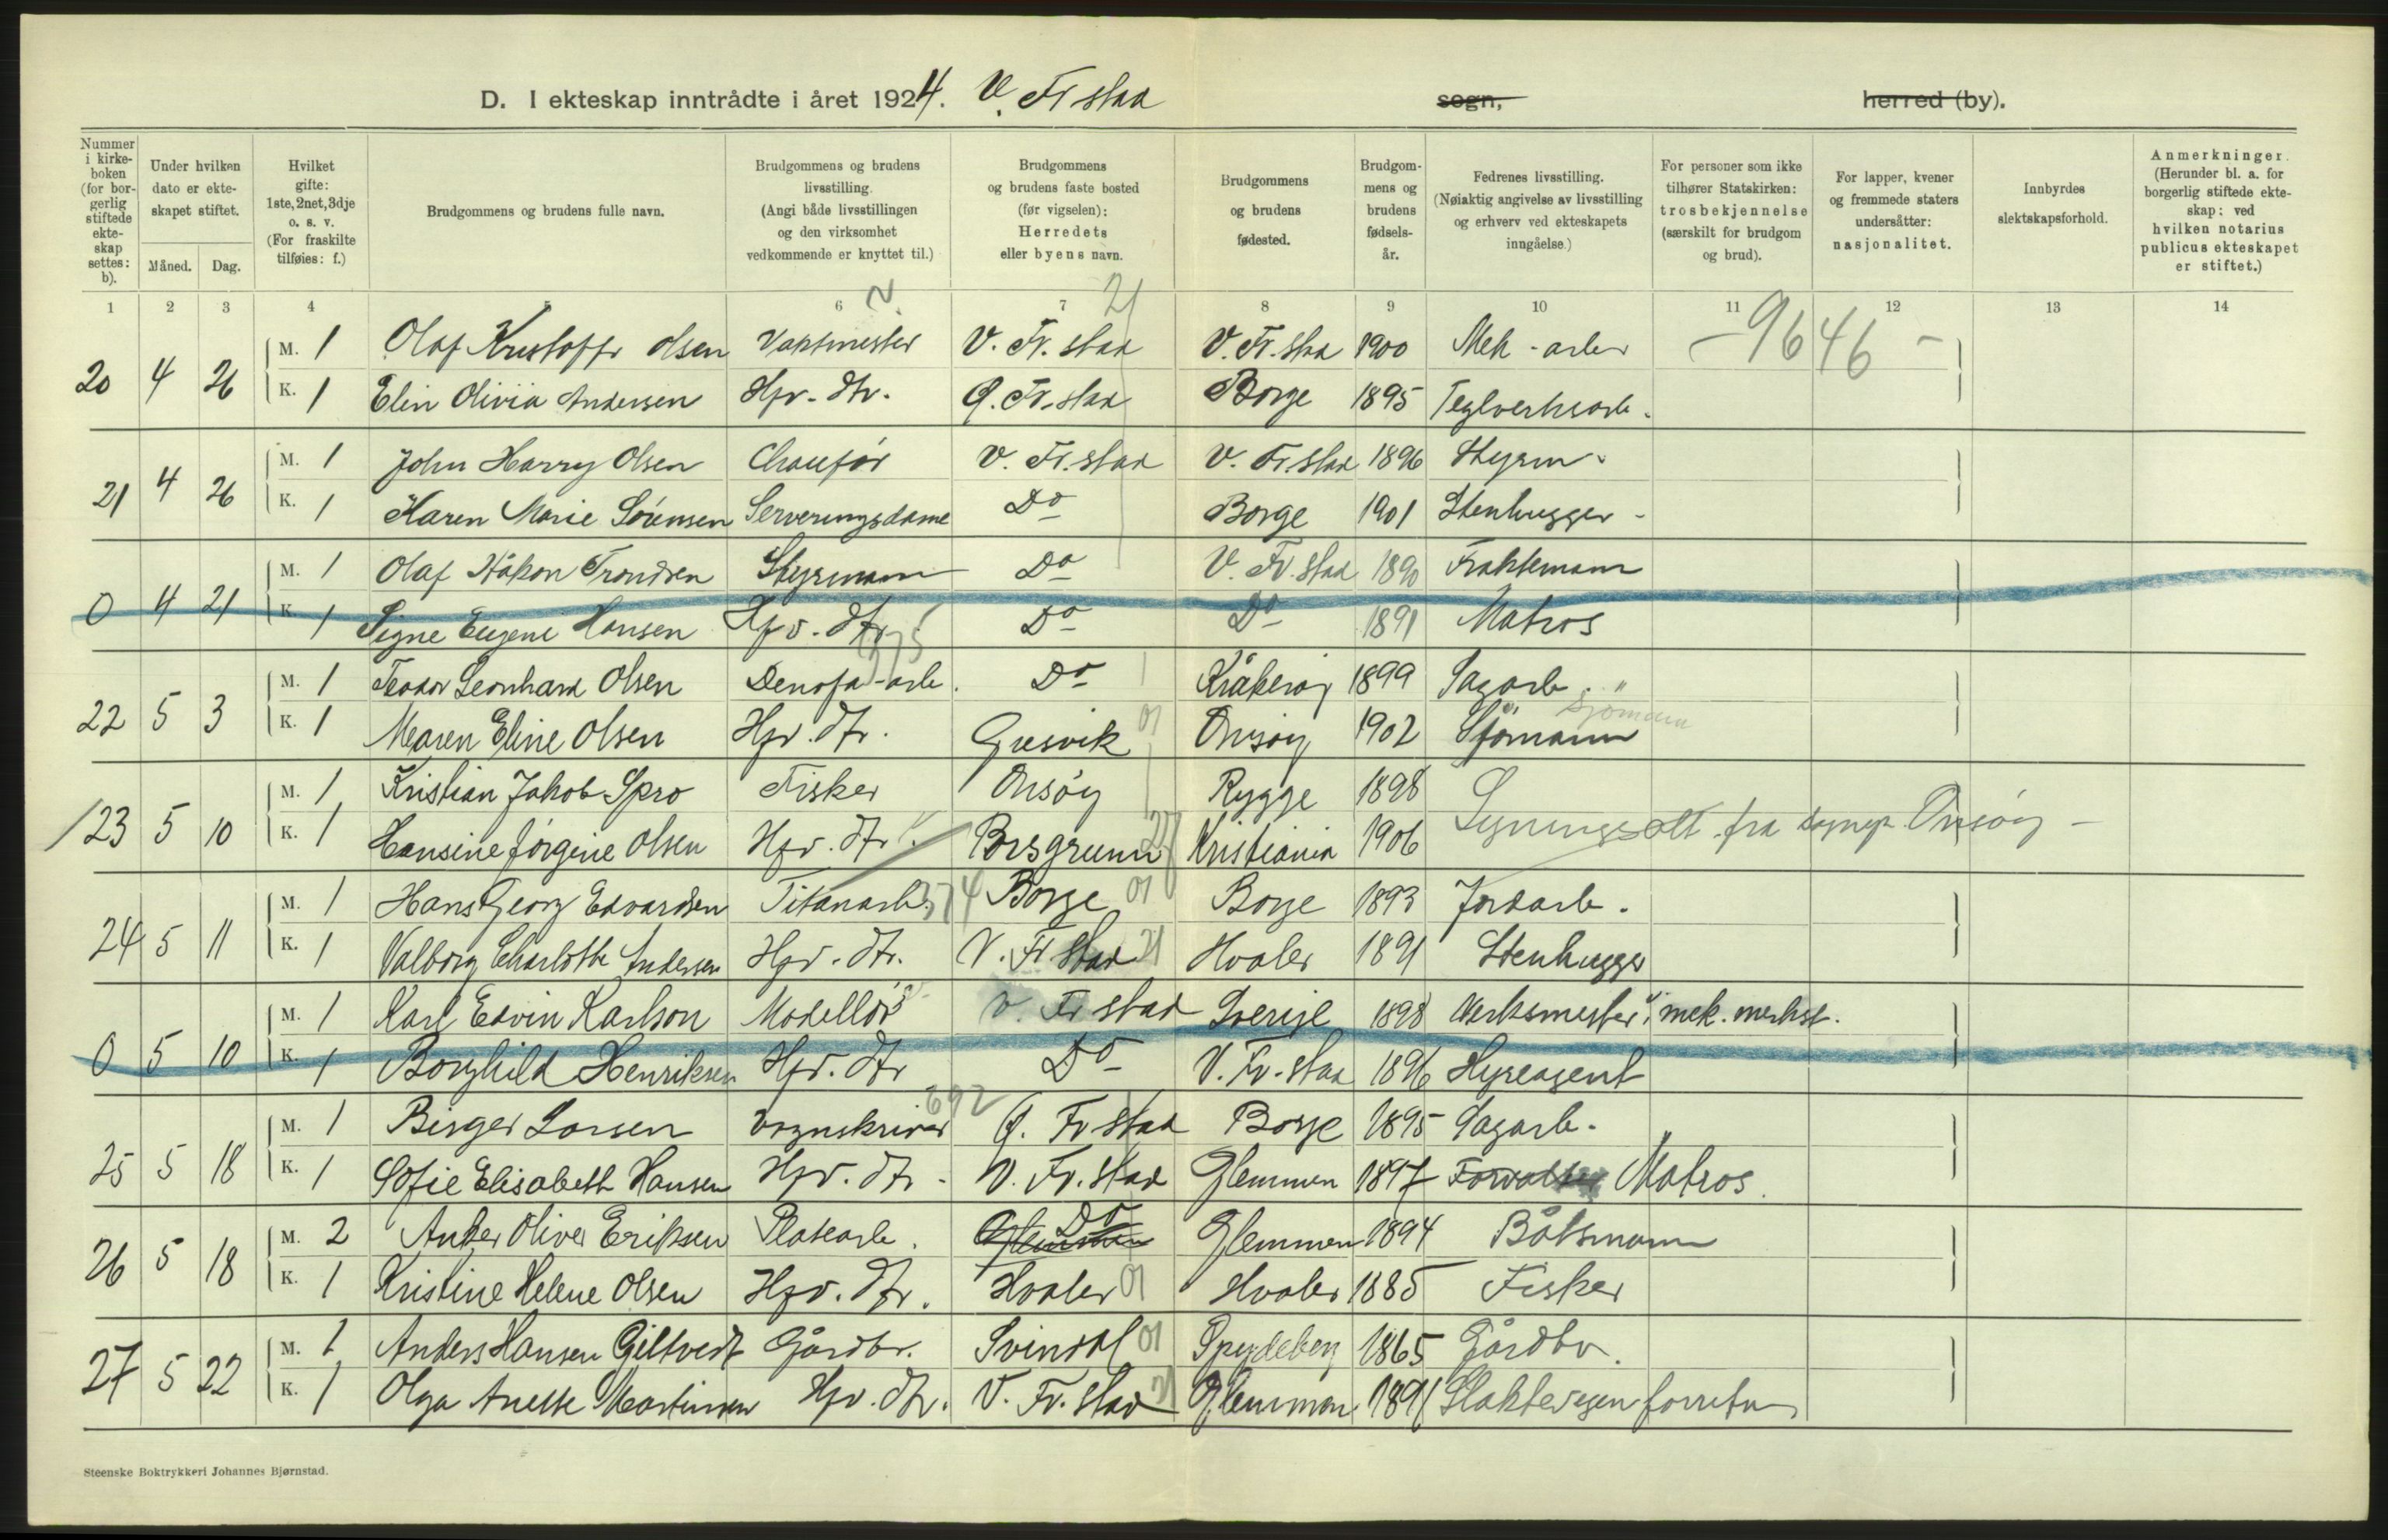 D. I ekteskap inntrådte i året 1924. V. Fr stad sogn, herred (by).
Nummer i kirkeboken (for borgerlig stiftede ekteskap settes: b).
Under hvilken dato er ekteskapet stiftet.
Måned. Dag.
Hvilket gifte: 1ste, 2net, 3dje o. s. v. (For fraskilte tilføies: f.)
Brudgommens og brudens fulle navn.
Brudgommens og brudens livsstilling. (Angi både livsstillingen og den virksomhet vedkommende er knyttet til.)
Brudgommens og brudens faste bosted (før vigselen): Herredets eller byens navn.
Brudgommens og brudens fødested.
Brudgommens og brudens fødselsår.
Fedrenes livsstilling. (Nøiaktig angivelse av livsstilling og erhverv ved ekteskapets inngåelse.)
For personer som ikke tilhører Statskirken: trosbekjennelse (særskilt for brudgom og brud).
For lapper, kvener og fremmede staters undersåtter: nasjonalitet.
Innbyrdes slektskapsforhold.
Anmerkninger. (Herunder bl. a. for borgerlig stiftede ekteskap: ved hvilken notarius publicus ekteskapet er stiftet.)
1 2 3 4 5 6 7 8 9 10 11 12 13 14
2 21
20 4 26 M. 1 Olaf Kristoffr Olsen Vaktmester V. Fr. stad V. Fr. stad 1900 Mek - arbr - 9646 -
K. 1 Elin Olivia Andersen Hpv. dtr. Q. Fr. stad Borge 1895 Teglverksarb.
21 4 26 M. 1 John Harry Olsen Chaufør V. Fr. stad V. Fr. stad 1896 Styrm.
K. 1 Karen Marie Sørensen Serveringsdame Do Borge 1901 Stenhugger -
0 4 21 M. 1 Olaf Håkon Trondsen Styrmann Do V. Fr. stad 1890 Fraktemann
K. 1 Signe Eugenie Hansen Hpv. dtr. Do Do 1891 Matros
22 5 3 M. 1 Teodor Leonhard Olsen Denofa-arb. Do Kråkerøy 1899 Sagarb.
K. 1 Maren Eline Olsen Hpv. dtr. Gresvik 01 Onsøy 1902 Sjømann Sjømann
23 5 10 M. 1 Kristian Jakob Spro Fisker Onsøy Rygge 1898
K. 1 Hansine Jørgine Olsen Hpv. dtr. Porsgrunn Kristiania 1906 fra Onsøy -
24 5 11 M. 1 Hans Georg Edvardsen Titanarb. 374 Borge 01 Borge 1893 Jordarb.
K. 1 Valborg Charlotte Andersen Hpv. dtr. V. Fr. stad 21 Hvaler 1891 Stenhugger
0 5 10 M. 1 Karl Edvin Karlson Modellør V. Fr stad Sverige 1898 Verksmester i mek. verkst.
K. 1 Borghild Henriksen Hpv. dtr Do V. Fr. stad 1896 Hyreagent
25 5 18 M. 1 Birger Larsen Vognskriver 692 Q. Fr stad Borge 1895 Sagarb.
K. 1 Sofie Elisabeth Hansen Hpv. dtr. V. Fr. stad Glemmen 1897 Matros.
26 5 18 M. 2 Anker Oliver Eriksen Platearb. Glemmen Do Glemmen 1894 Båtsmann
K. 1 Kristine Helene Olsen Hpv. dtr. Hvaler 01 Hvaler 1885 Fisker
27 5 22 M. 1 Anders Hansen Giltvedt Gårdbr. Svindal 01 Spydeberg 1865 Gårdbr.
K. 1 Olga Anette Martinsen Hpv. dtr. V. Fr. stad 21 Glemmen 1891
Steenske Boktrykkeri Johannes Bjørnstad.